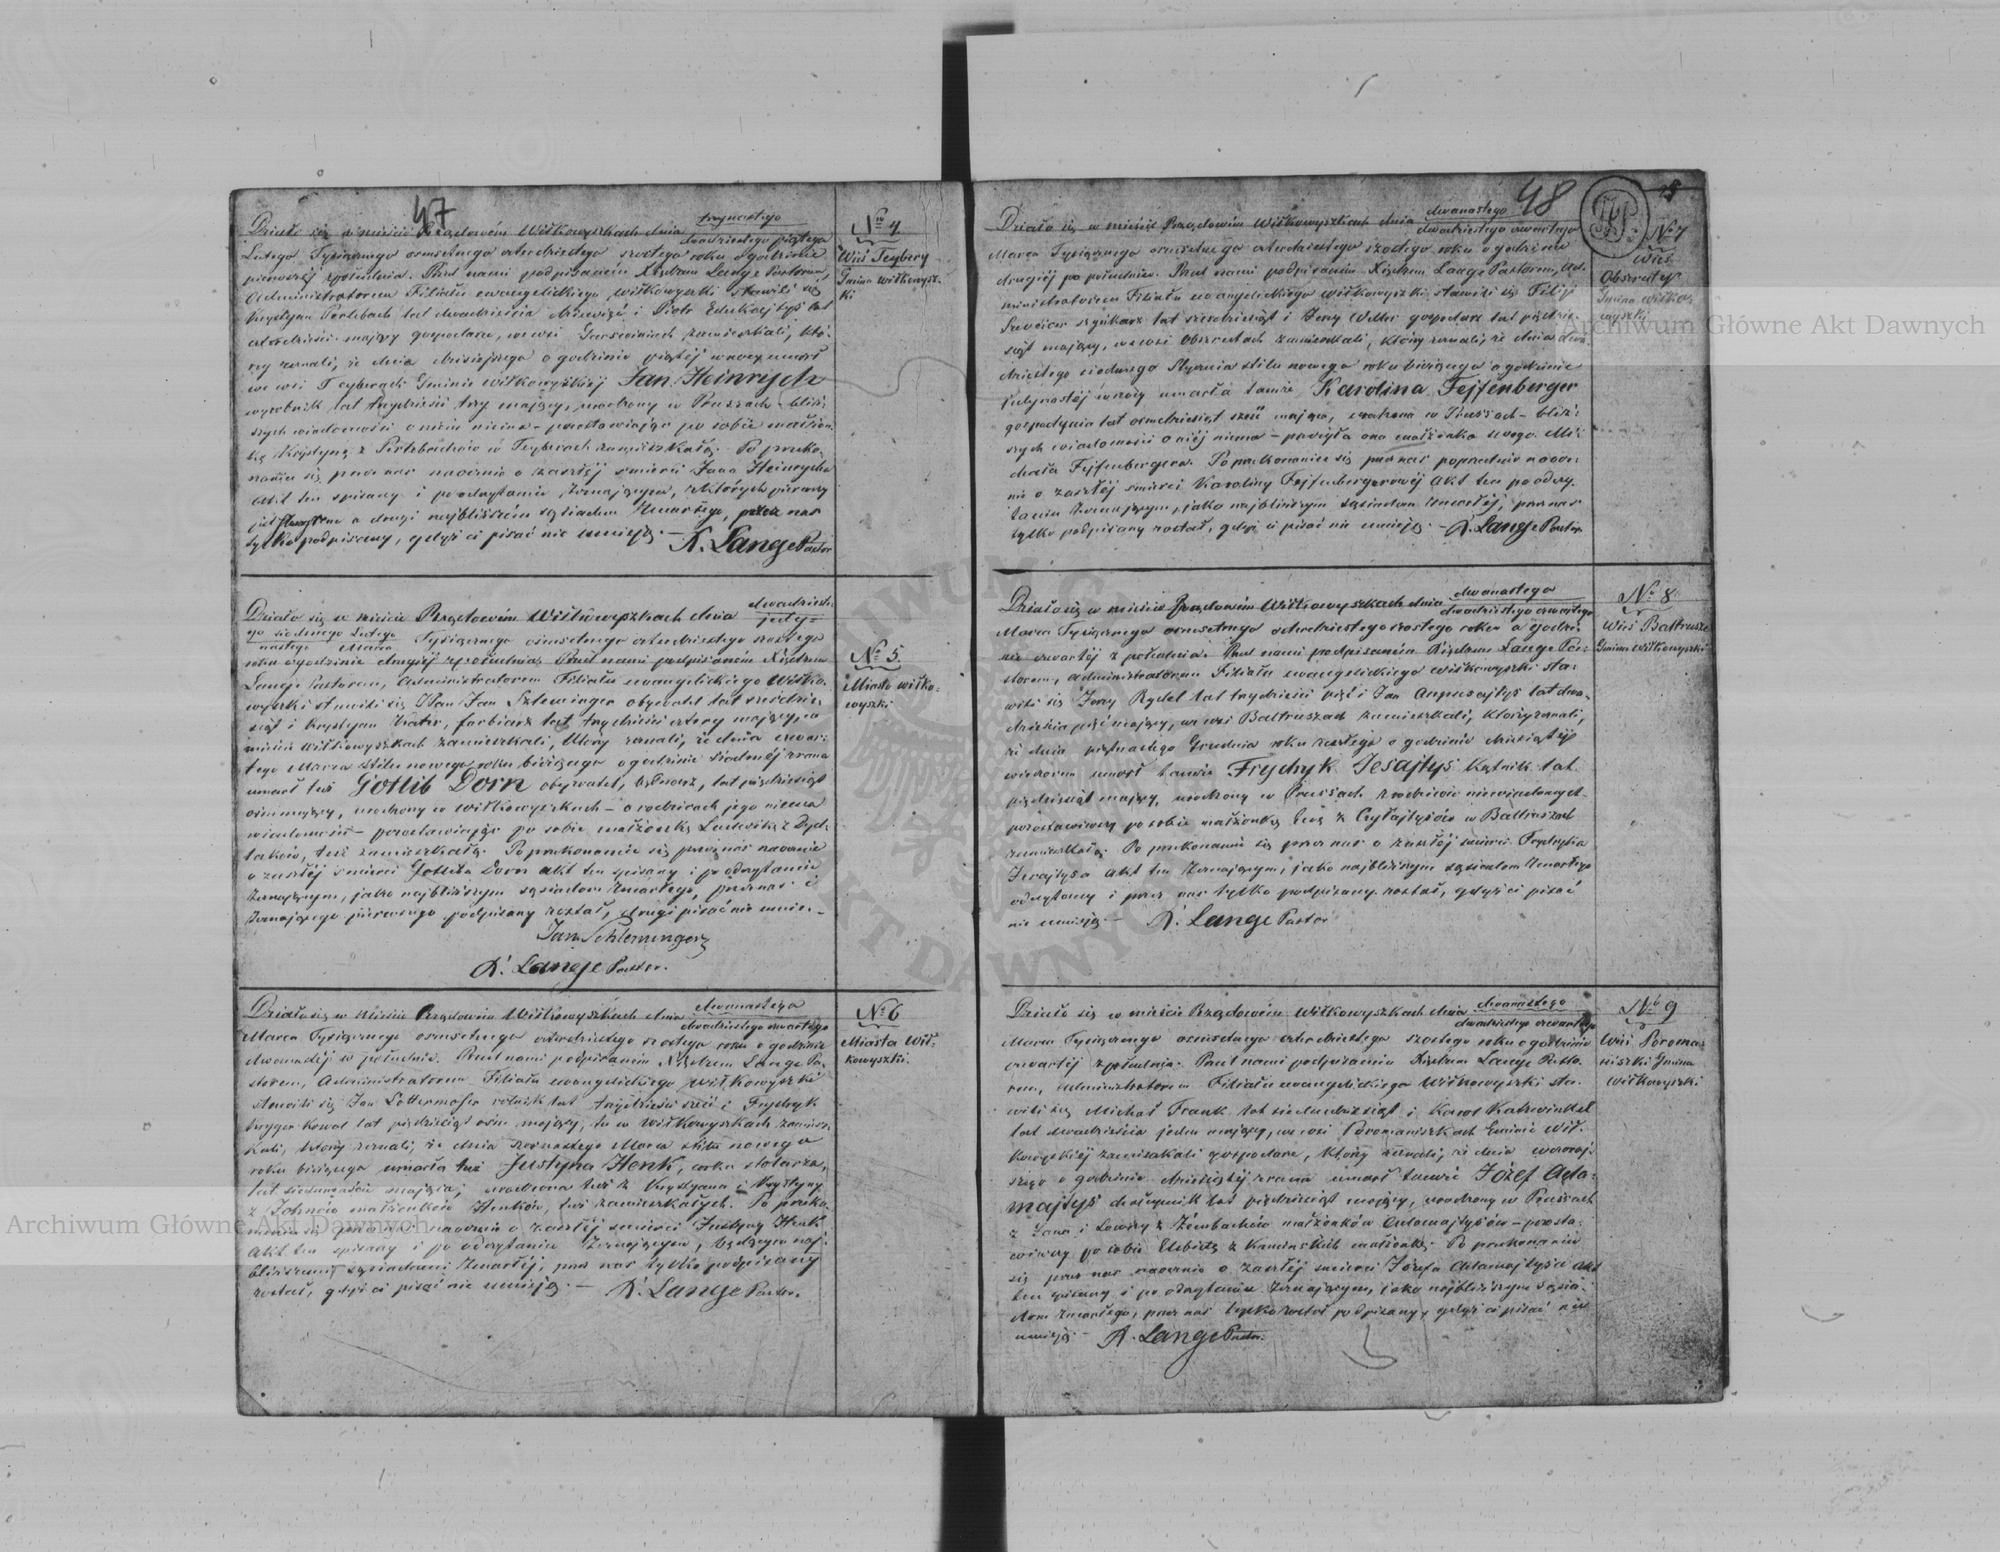 47
Działo się w mieście Rządowém Wiłkowyszkach dnia trzynastego
dwudziestego piątego
Lutego Tysiącznego osmsetnego czterdziestego szostego roku o godzinie
pierwszej z południa. Przed nami podpisaném Xiędzem Lange Pastorem,
Administratorem Filiału ewangelickiego Wiłkowyszki stawili się
Krystyan lat dwadzieścia i Piotr lat
czterdzieści mający gospodarze, we wsi zamieszkali, któ-
rzy zeznali, że dnia dzisiejszego o godzinie piątej w nocy umarł
we wsi Teyberach Gminie Wiłkowyszkiej Jan Heinrych
wyrobnik lat trzydzieści trzy mający, urodzony w Prussach - bliż-
szych wiadomości o niém niema - pozostawiając po sobie małżon-
kę Krystynę z w Teyberach zamieszkałą. Po przeko-
naniu się przez nas naocznie o zaszłéj śmierci Jana Heinrycha
Akt ten spisany i po odczytaniu Zeznającym, z których pierwszy
jest a drugi najbliższém sąsiadem Zmarłego, przez nas
tylko podpisany, gdyż ci pisać nie umieją. — A. Lange Pastor
No 4
Wieś Teybery
Gmina Wiłkowysz-
ki
Działo się w mieście Rządowém Wiłkowyszkach dnia dwudzieste-
go siodmego Lutego
nastego Marca Tysiącznego osmsetnego czterdziestego szostego
roku o godzinie drugiéj z południa. Przed nami podpisaném Xiędzem
Lange Pastorem, Administratorem Filiału ewangelickiego Wiłko-
wyszki stawili się Pan Jan Szleminger obywatel lat sześćdzie-
siąt i Krystyan farbiarz lat trzydzieści cztery mający, w
mieście Wiłkowyszkach zamieszkali, którzy zeznali, że dnia czwar-
tego Marca stilu nowego roku bieżącego o godzinie siodméj z rana
umarł tuż Gotlib Dorn obywatel, lat pięćdziesiąt
ośm mający, urodzony w Wiłkowyszkach - o rodzicach jego niema
wiadomości - pozostawiając po sobie małżonkę Ludwikę z
tuż zamieszkałą. Po przekonaniu się przez nas naocznie
o zaszłéj śmierci Gotliba Dorn akt ten spisany i po odczytaniu
Zeznającym, jako najbliższym sąsiadom Zmarłego, przez nas i
Zeznającego pierwszego podpisany został, drugi pisać nie umie. —
Jan Schlemminger
A. Lange Pastor.
No 5.
Miasto Wiłko-
wyszki
Działo się w mieście Rządowém Wiłkowyszkach dnia dwunastego
dwudziestego czwartego
Marca Tysiącznego osmsetnego czterdziestego szostego roku o godzinie
dwunastéj w południe. Przed nami podpisaném Xiędzem Lange Pa-
storem, Administratorem Filiału ewangelickiego Wiłkowyszki
stawili się Jan Lottermoser rolnik lat trzydzieści sześć i Frydryk
Kryger kowal lat pięćdziesiąt ośm mający, tu w Wiłkowyszkach zamiesz-
kali, którzy zeznali, że dnia Marca stilu nowego
roku bieżącego umarła tuż Justyna Henk, córka stolarza,
lat siedmnaście mająca, urodzona tuż z Krystyana i Krystyny
z Johnów małżonków Henków, tuż zamieszkałych. Po przeko-
naniu się przez nas naocznie o zaszłéj śmierci Justyny Henk
Akt ten spisany i po odczytaniu Zeznającym, będącym naj-
bliższemi sąsiadami Zmarłéj, przez nas tylko podpisany
został, gdyż ci pisać nie umieją. — A. Lange Pastor.
No 6
Miasto Wił-
kowyszki.
48
Działo się w mieście Rządowém Wiłkowyszkach dnia dwunastego
dwudziestego czwartego
Marca Tysiącznego osmsetnego czterdziestego szostego roku o godzinie
drugiéj po południu. Przed nami podpisaném Xiędzem Lange Pastorem, Ad-
ministratorem Filiału ewangelickiego Wiłkowyszki stawili się Filip
Szweicer szynkarz lat sześćdziesiąt i Jerzy gospodarz lat pięćdzie-
siąt mający, we wsi Obszrutach zamieszkali, którzy zeznali, że dnia dwu-
dziestego siodmego Stycznia stilu nowego roku bieżącego o godzinie
jedynastéj w nocy umarła tamże Karolina Fejfenberger
gospodyni lat ośmdziesiąt sześć mająca, urodzona w Prussach - bliż-
szych wiadomości o niéj niema - przeżyła ona małżonka swego Mi-
chała Fejfenbergera. Po przekonaniu się przez nas poprzednio naocz-
nie o zaszłéj śmierci Karoliny Fejfenbergerowéj Akt ten po odczy-
taniu Zeznającym, jako najbliższym sąsiadom Zmarłéj, przez nas
tylko podpisany został, gdyż ci pisać nie umieją. — A. Lange Pastor.
No 7
Wieś
Obszruty
Gmina Wiłko-
wyszki
Działo się w mieście Rządowém Wiłkowyszkach dnia dwunastego
dwudziestego czwartego
Marca Tysiącznego osmsetnego czterdziestego szostego roku o godzi-
nie czwartéj z południa. Przed nami podpisaném Xiędzem Lange Pa-
storem, Administratorem Filiału ewangelickiego Wiłkowyszki sta-
wili się Jerzy Rydel lat trzydzieści pięć i Jan lat dwa-
dzieścia pięć mający, we wsi Baltruszach zamieszkali, którzy zeznali,
że dnia piętnastego Grudnia roku zeszłego o godzinie dziesiątéj
wieczorem umarł tamże Frydryk Jesajtys kątnik lat
pięćdziesiąt mający, urodzony w Prussach z rodziców niewiadomych
pozostawiwszy po sobie małżonkę Ewę z w Baltruszach
zamieszkałą. Po przekonaniu się przez nas o zaszłéj śmierci Frydryka
Jesajtysa Akt ten Zeznającym, jako najbliższym sąsiadom Zmarłego
odczytany i przez nas tylko podpisany został, gdyż ci pisać
nie umieją. — A. Lange Pastor
No 8
Wieś Baltrusze
Gmina Wiłkowyszki
Działo się w mieście Rządowém Wiłkowyszkach dnia dwunastego
dwudziestego czwartego
Marca Tysiącznego osmsetnego czterdziestego szostego roku o godzinie
czwartéj z południa. Przed nami podpisaném Xiędzem Lange Pasto-
rem, Administratorem Filiału ewangelickiego Wiłkowyszki sta-
wili się Michał Frank lat siedmdziesiąt i Karol Kalzwinkel
lat dwadzieścia jeden mający, we wsi Poromaniszkach Gminie Wił-
kowyskiéj zamieszkali gospodarze, którzy zeznali, że dnia wczoraj-
szego o godzinie dziesiątéj z rana umarł tamże Józef Ada-
majtys lat pięćdziesiąt mający, urodzony w Prussach
z Jana i małżonków Adamajtysów - pozosta-
wiwszy po sobie Elżbietę z Kamińskich małżonkę. Po przekonaniu
się przez nas naocznie o zaszłéj śmierci Józefa Adamajtysa akt
ten spisany i po odczytaniu Zeznającym, jako najbliższym sąsia-
dom Zmarłego, przez nas tylko został podpisany, gdyż ci pisać nie
umieją. — A. Lange Pastor.
No 9
Wieś Poroma-
niszki Gmina
Wiłkowyszki
Archiwum Główne Akt Dawnych
Archiwum Główne Akt Dawnych